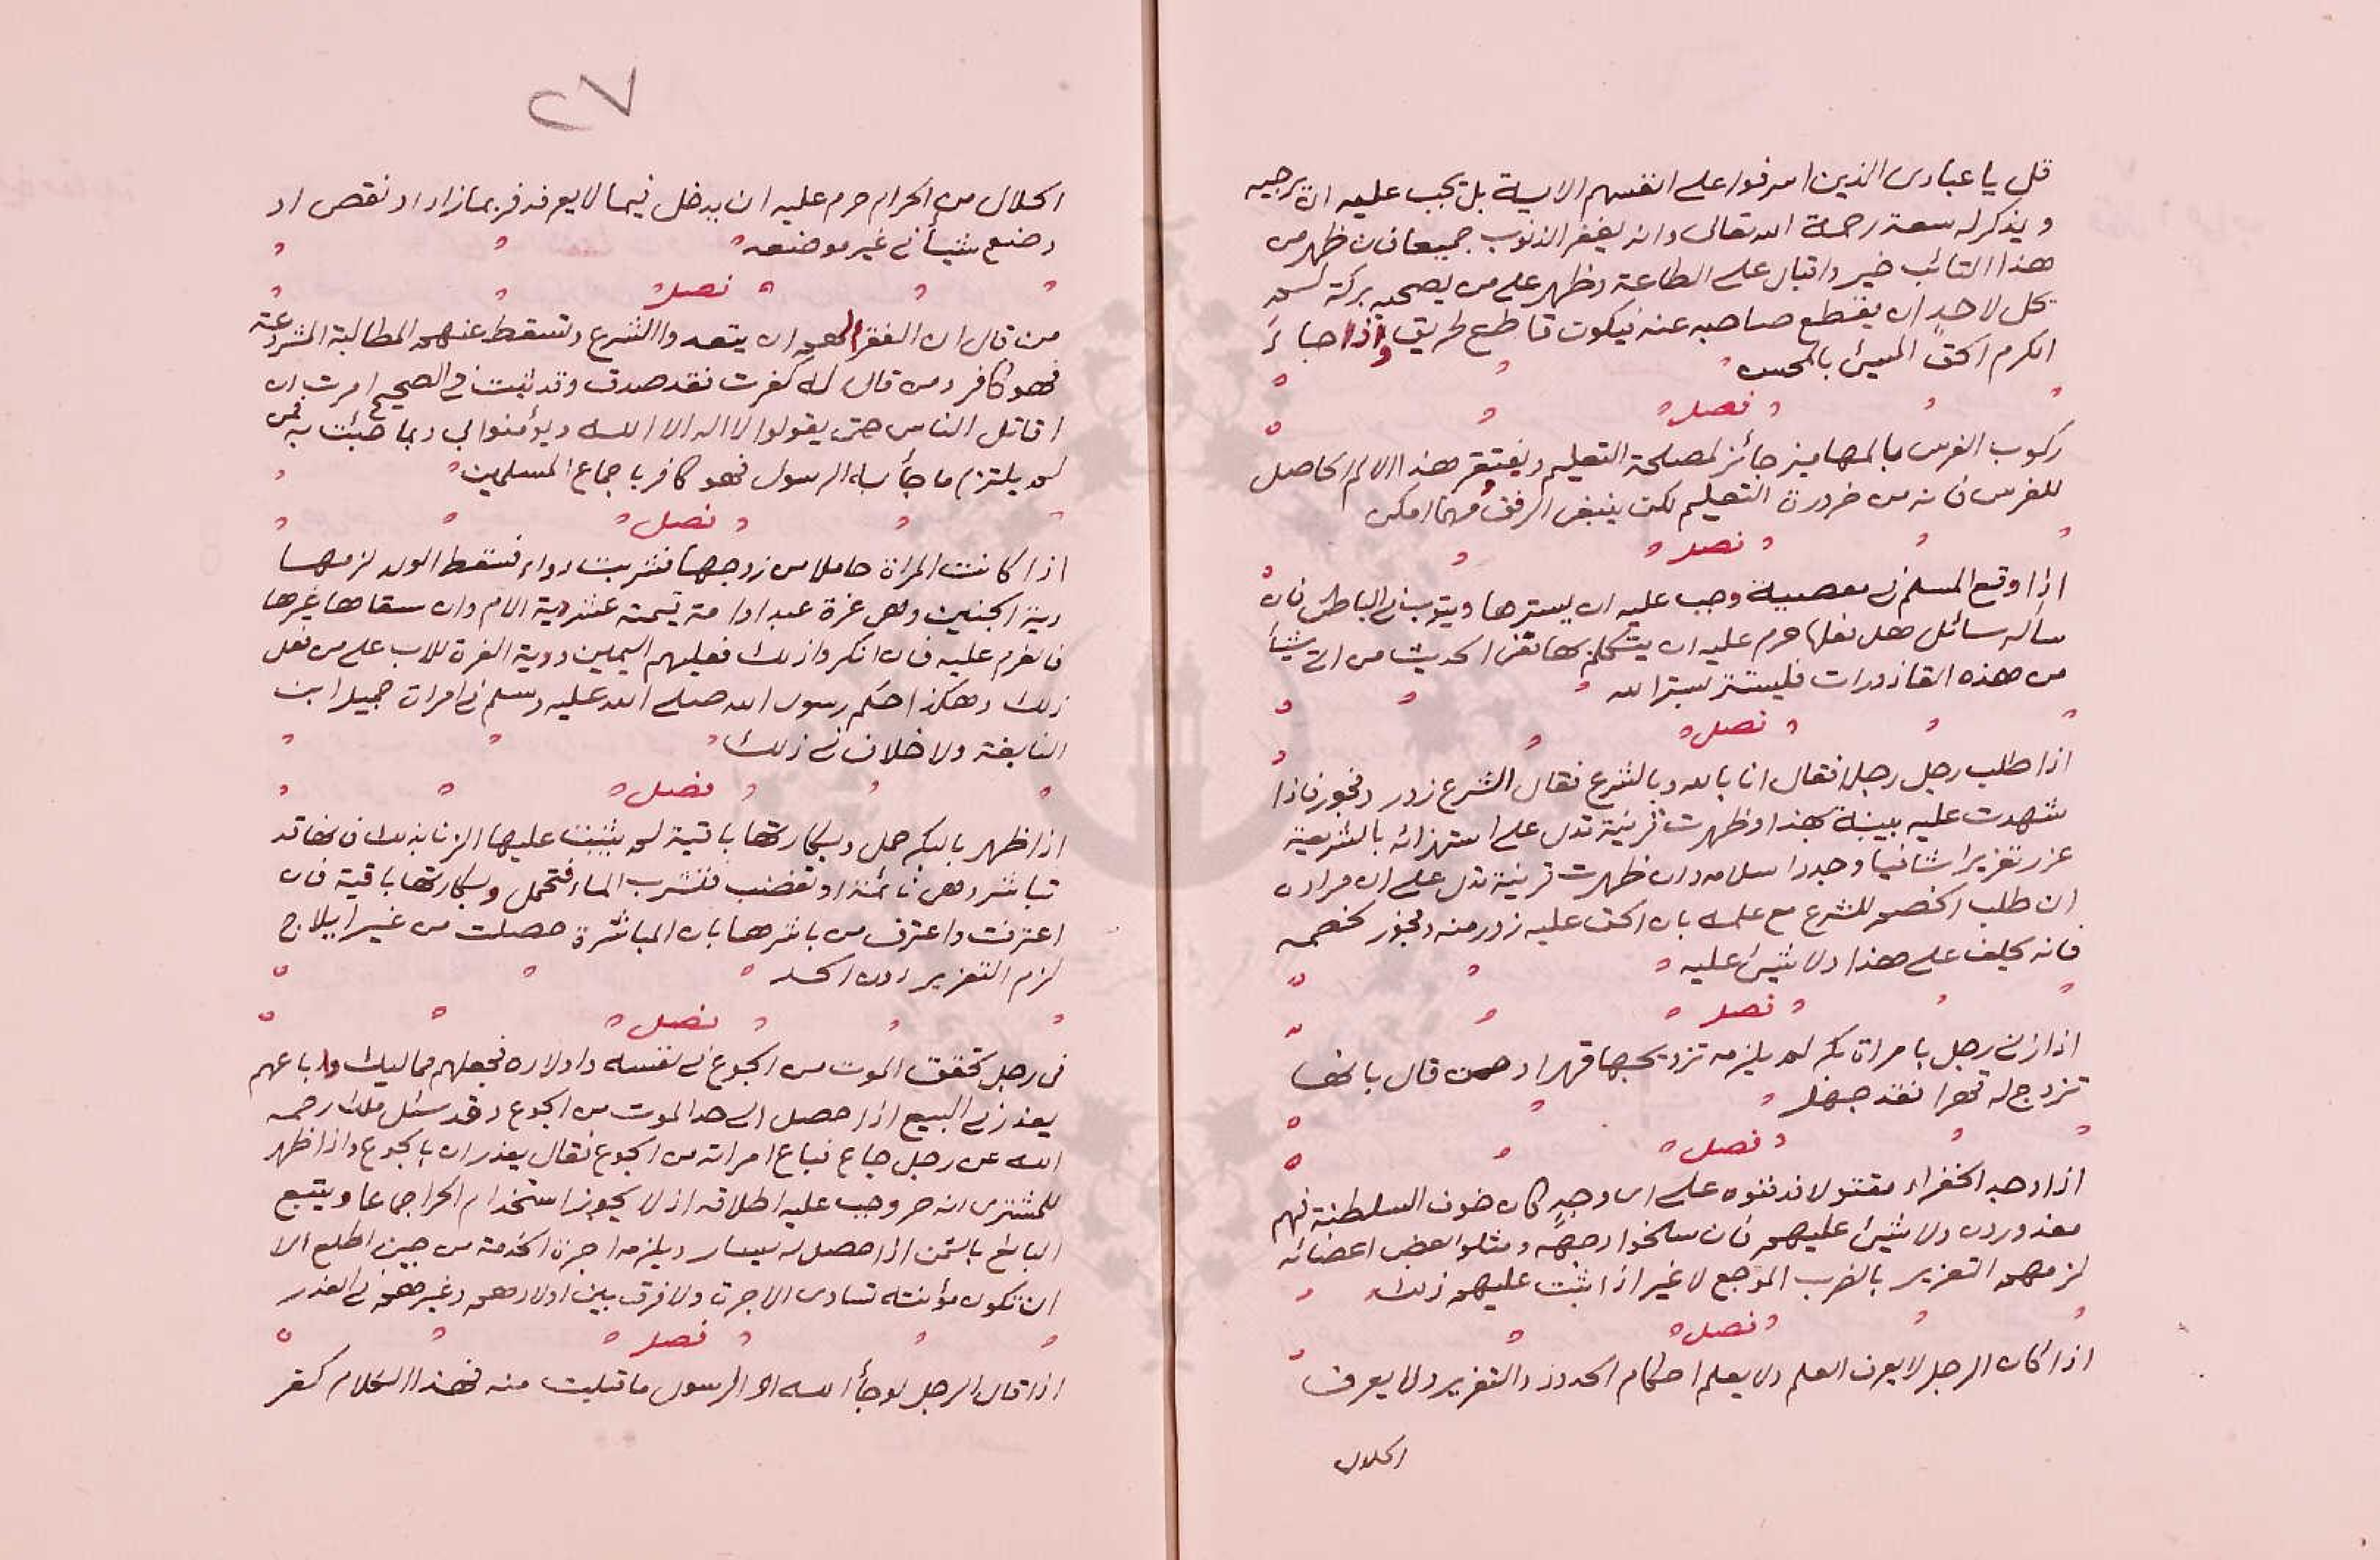 قل يا عبادى الذين اسرفوا على انفسهم الاية بل يجب عليه ان يرجيه
ويذكر له سعة رحمة الله تعالى وانه يغفر الذنوب جميعا فان ظهر من
هذا التائب خير واقبال على الطاعة وظهر على من يصحبه بركة لم
يحل لاحد ان يقطع صاحبه عنه فيكون قاطع طريق واذا جاء
الكرم الحق المسيئ بالمحسن
فصل
ركوب الفرس بالمهاميز جائز لمصلحة التعليم ويغتفر هذا الالم الحاصل
للفرس فانه من ضرورة التعليم لكن ينبغى الرفق مهما امكن
فصل
اذا وقع المسلم فى معصية وجب عليه ان يسترها ويتوب فى الباطن فان
سأله سائل هل فعلها حرم عليه ان يتكلم بها ففى الحديث من اتى شيئا
من هذه القاذورات فليستتر بستر الله
فصل
اذا طلب رجل رجلا فقال انا بالله وبالشرع فقال الشرع زور وفجور فاذا
شهدت عليه بينة بهذا وظهرت قرينة تدل على استهزائه بالشريعة
عزر تعزيرا شافيا وجدد اسلامه وان ظهرت قرينة تدل على ان مراده
ان طلب الخصم للشرع مع علمه بان الحق عليه زور منه وفجور لخصمه
فانه يحلف على هذا ولا شيئ عليه
فصل
اذا زنى رجل بامراة بكر لم يلزمه تزويجها قهرا ومن قال بانها
تزوج له قهرا فقد جهل
فصل
اذا وجد الخفراء مقتولا فدفنوه على اى وجه كان خوف السلطنة فهم
معذورون ولا شيئ عليهم فان سلخوا وجهه ومثلوا بعض اعضائه
لزمهم التعزير بالضرب الموجع لا غير اذا ثبت عليهم ذلك
فصل
اذا كان الرجل لا يعرف العلم ولا يعلم احكام الحدود والتعزير ولا يعرف
الحلال
٢٧
الحلال من الحرام حرم عليه ان يدخل فيما لا يعرفه فربما زاد او نقص او
وضع شيأ فى غير موضعه
فصل
من قال ان الفقرا لهم ان يتعدوا الشرع وتسقط عنهم المطالبة الشرعية
فهو كافر ومن قال له كفرت فقد صدق وقد ثبت فى الصحيح امرت ان
اقاتل الناس حتى يقولوا لا اله الا الله ويؤمنوا بى وبما جئت به فمن
لم يلتزم ما جأ به الرسول فهو كافر باجماع المسلمين
فصل
اذا كانت المراة حاملا من زوجها فشربت دواء فسقط الولد لزمها
دية الجنين وهى غرة عبد او امة قيمته عشر دية الام وان سقاها غيرها
فالغرم عليه فان انكروا ذلك فعليهم اليمين ودية الغرة للاب على من فعل
ذلك وهكذا حكم رسول الله صلى الله عليه وسلم فى امراة جميل ابن
النابغة ولا خلاف فى ذلك
فصل
اذا ظهر بالبكر حمل وبكارتها باقية لم يثبت عليها الزنا بذلك فانها قد
تباشر وهى نائمة او تغضب فتشرب الماء فتحمل وبكارتها باقية فان
اعترفت واعترف من باشرها بان المباشرة حصلت من غير ايلاج
لزم التعزير دون الحد
فصل
فى رجل تحقق الموت من الجوع فى نفسه واولاده فجعلهم مماليك وباعهم
يعذر فى البيع اذا حصل الى حد الموت من الجوع وقد سئل مالك رحمه
الله عن رجل جاع فباع امراته من الجوع فقال يعذران بالجوع واذا ظهر
للمشترى انه حر وجب عليه اطلاقه اذ لا يجوز استخدام الحر اجماعا ويتبع
البائع بالثمن اذا حصل له يسار ويلزمه اجرة الخدمة من حين اطلع الا
ان تكون مؤانته تساوى الاجرة ولا فرق بين اولادهم وغيرهم فى العذر
فصل
اذا قال الرجل لو جأ الله او الرسول ما قبلت منه فهذا الكلام كفر